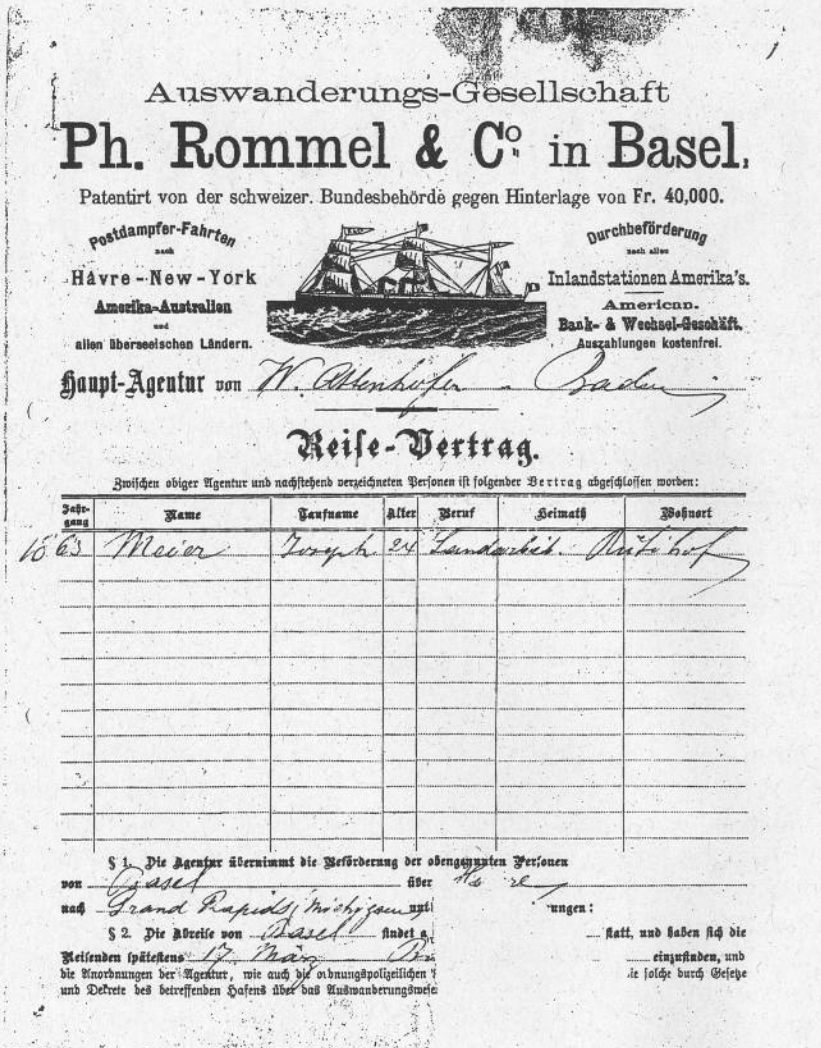 Auswanderungs-Gesellschaft
Ph. Rommel & Cº in Basel.
Patentirt von der schweizer. Bundesbehörde gegen Hinterlage von Fr. 40,000.
Postdampfer-Fahrten
nach
Hâvre-New-York
Amerika-Australien
und
allen überseeischen Ländern.
Durchbeförderung
nach allen
Inlandstationen Amerika's.
American.
Bank- & Wechsel-Geschäft.
Auszahlungen kostenfrei.
Haupt-Agentur von W. Attenhofer - Baden
Reise-Vertrag.
Zwischen obiger Agentur und nachstehend verzeichneten Personen ist folgender Vertrag abgeschlossen worden:
Jahr-gang Name Taufname Alter Beruf Heimath Wohnort
1863 Meier Joseph 24 Landarbeit. Rütihof
§ 1. Die Agentur übernimmt die Beförderung der obengenannten Personen
von Basel über
nach Grand Rapids, Michigan ungen:
§ 2. Die Abreise von Basel findet statt, und haben sich die
Reisenden spätestens 17. März einzufinden, und
die Anordnungen der Agentur, wie auch die ordnungspolizeilichen solche durch Gesetze
und Dekrete des betreffenden Hafens über das Auswanderungswese